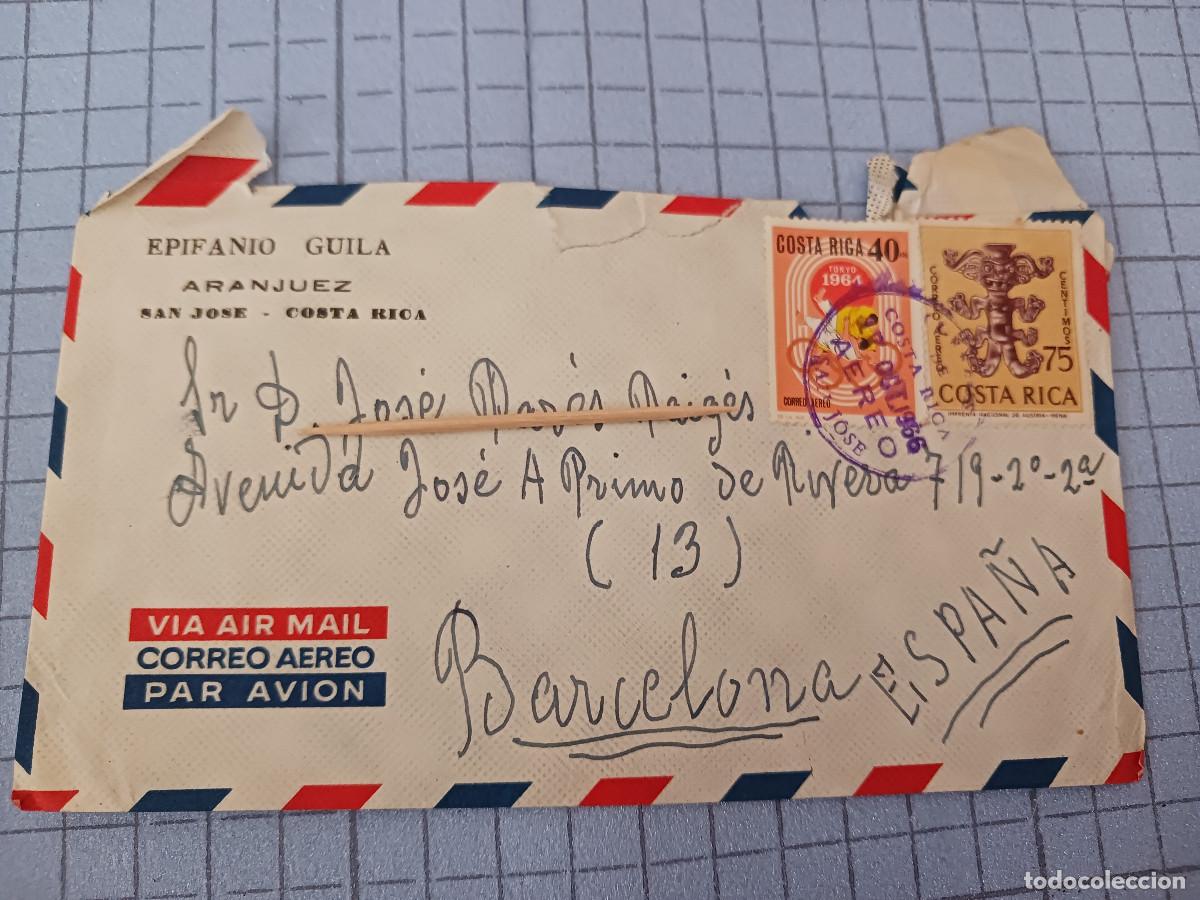 EPIFANIO GUILA
ARANJUEZ
SAN JOSE - COSTA RICA
COSTA RICA 40
TOKYO
1964
CORREO AEREO
CORREO AEREO
CENTIMOS
75
COSTA RICA
IMPRENTA NACIONAL DE AUSTRIA-VIENA
COSTA RICA
OCT. 1966
AEREO
SAN JOSE
Sr D. José
Avenida José A Primo de Rivera 719-2º-2ª
(13)
Barcelona
ESPAÑA
VIA AIR MAIL
CORREO AEREO
PAR AVION
todocoleccion